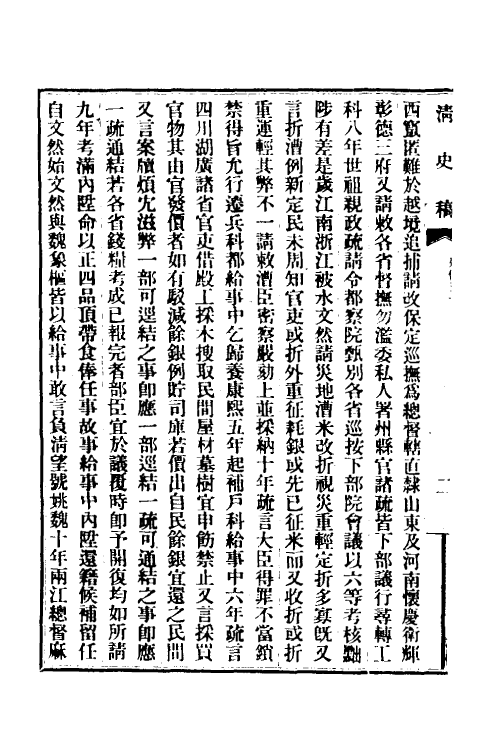 清史稿
西竄匿難於越境追捕請改保定巡撫爲總督轄直隸山東及河南懷慶衛輝
彰德三府又請敕各省督撫勿濫委私人署州縣官諸疏皆下部議行尋轉工
科八年世祖親政疏請令都察院甄別各省巡按下部院會議以六等考核黜
陟有差是歲江南浙江被水文然請災地漕米改折視災重輕定折多寡旣又
言折漕例新定民未周知官吏或折外重征耗銀或先已征米而又收折或折
重運輕其弊不一請敕漕臣密察嚴劾上並採納十年疏言大臣得罪不當鎖
禁得旨允行遷兵科都給事中乞歸養康熙五年起補戶科給事中六年疏言
四川湖廣諸省官吏借殿工採木搜取民間屋材墓樹宜申飭禁止又言採買
官物其由官發價者如有駁減餘銀例貯司庫若價出自民餘銀宜還之民間
又言案牘煩宂滋弊一部可逕結之事卽應一部逕結一疏可通結之事卽應
一疏通結若各省錢糧考成已報完者部臣宜於議覆時卽予開復均如所請
九年考滿內陞命以正四品頂帶食俸任事故事給事中內陞還籍候補留任
自文然始文然與魏象樞皆以給事中敢言負清望號姚魏十年兩江總督麻
二